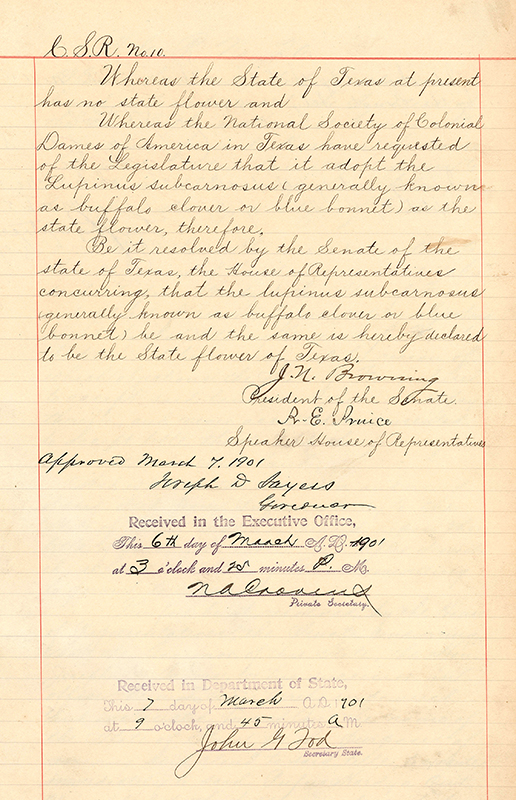 C. S. R. No. 10.
Whereas the State of Texas at present
has no state flower and
Whereas the National Society of Colonial
Dames of America in Texas have requested
of the Legislature that it adopt the
Lupinus subcarnosus (generally known
as buffalo clover or blue bonnet) as the
state flower, therefore,
Be it resolved by the Senate of the
state of Texas, the House of Representatives
concurring, that the lupinus subcarnosus
(generally known as buffalo clover or blue
bonnet) be and the same is hereby declared
to be the State flower of Texas.
J. N. Browning
President of the Senate.
R. E. Prince
Speaker House of Representatives
Approved March 7, 1901
Joseph D Sayers
Governor
Received in the Executive Office,
This 6th day of March A. D. 1901
at 3 o'clock and 25 minutes P. M.
Private Secretary.
Received in Department of State,
This 7 day of March A.D. 1901
at 9 o'clock, and 45 minutes A M
John G Tod
Secretary State.